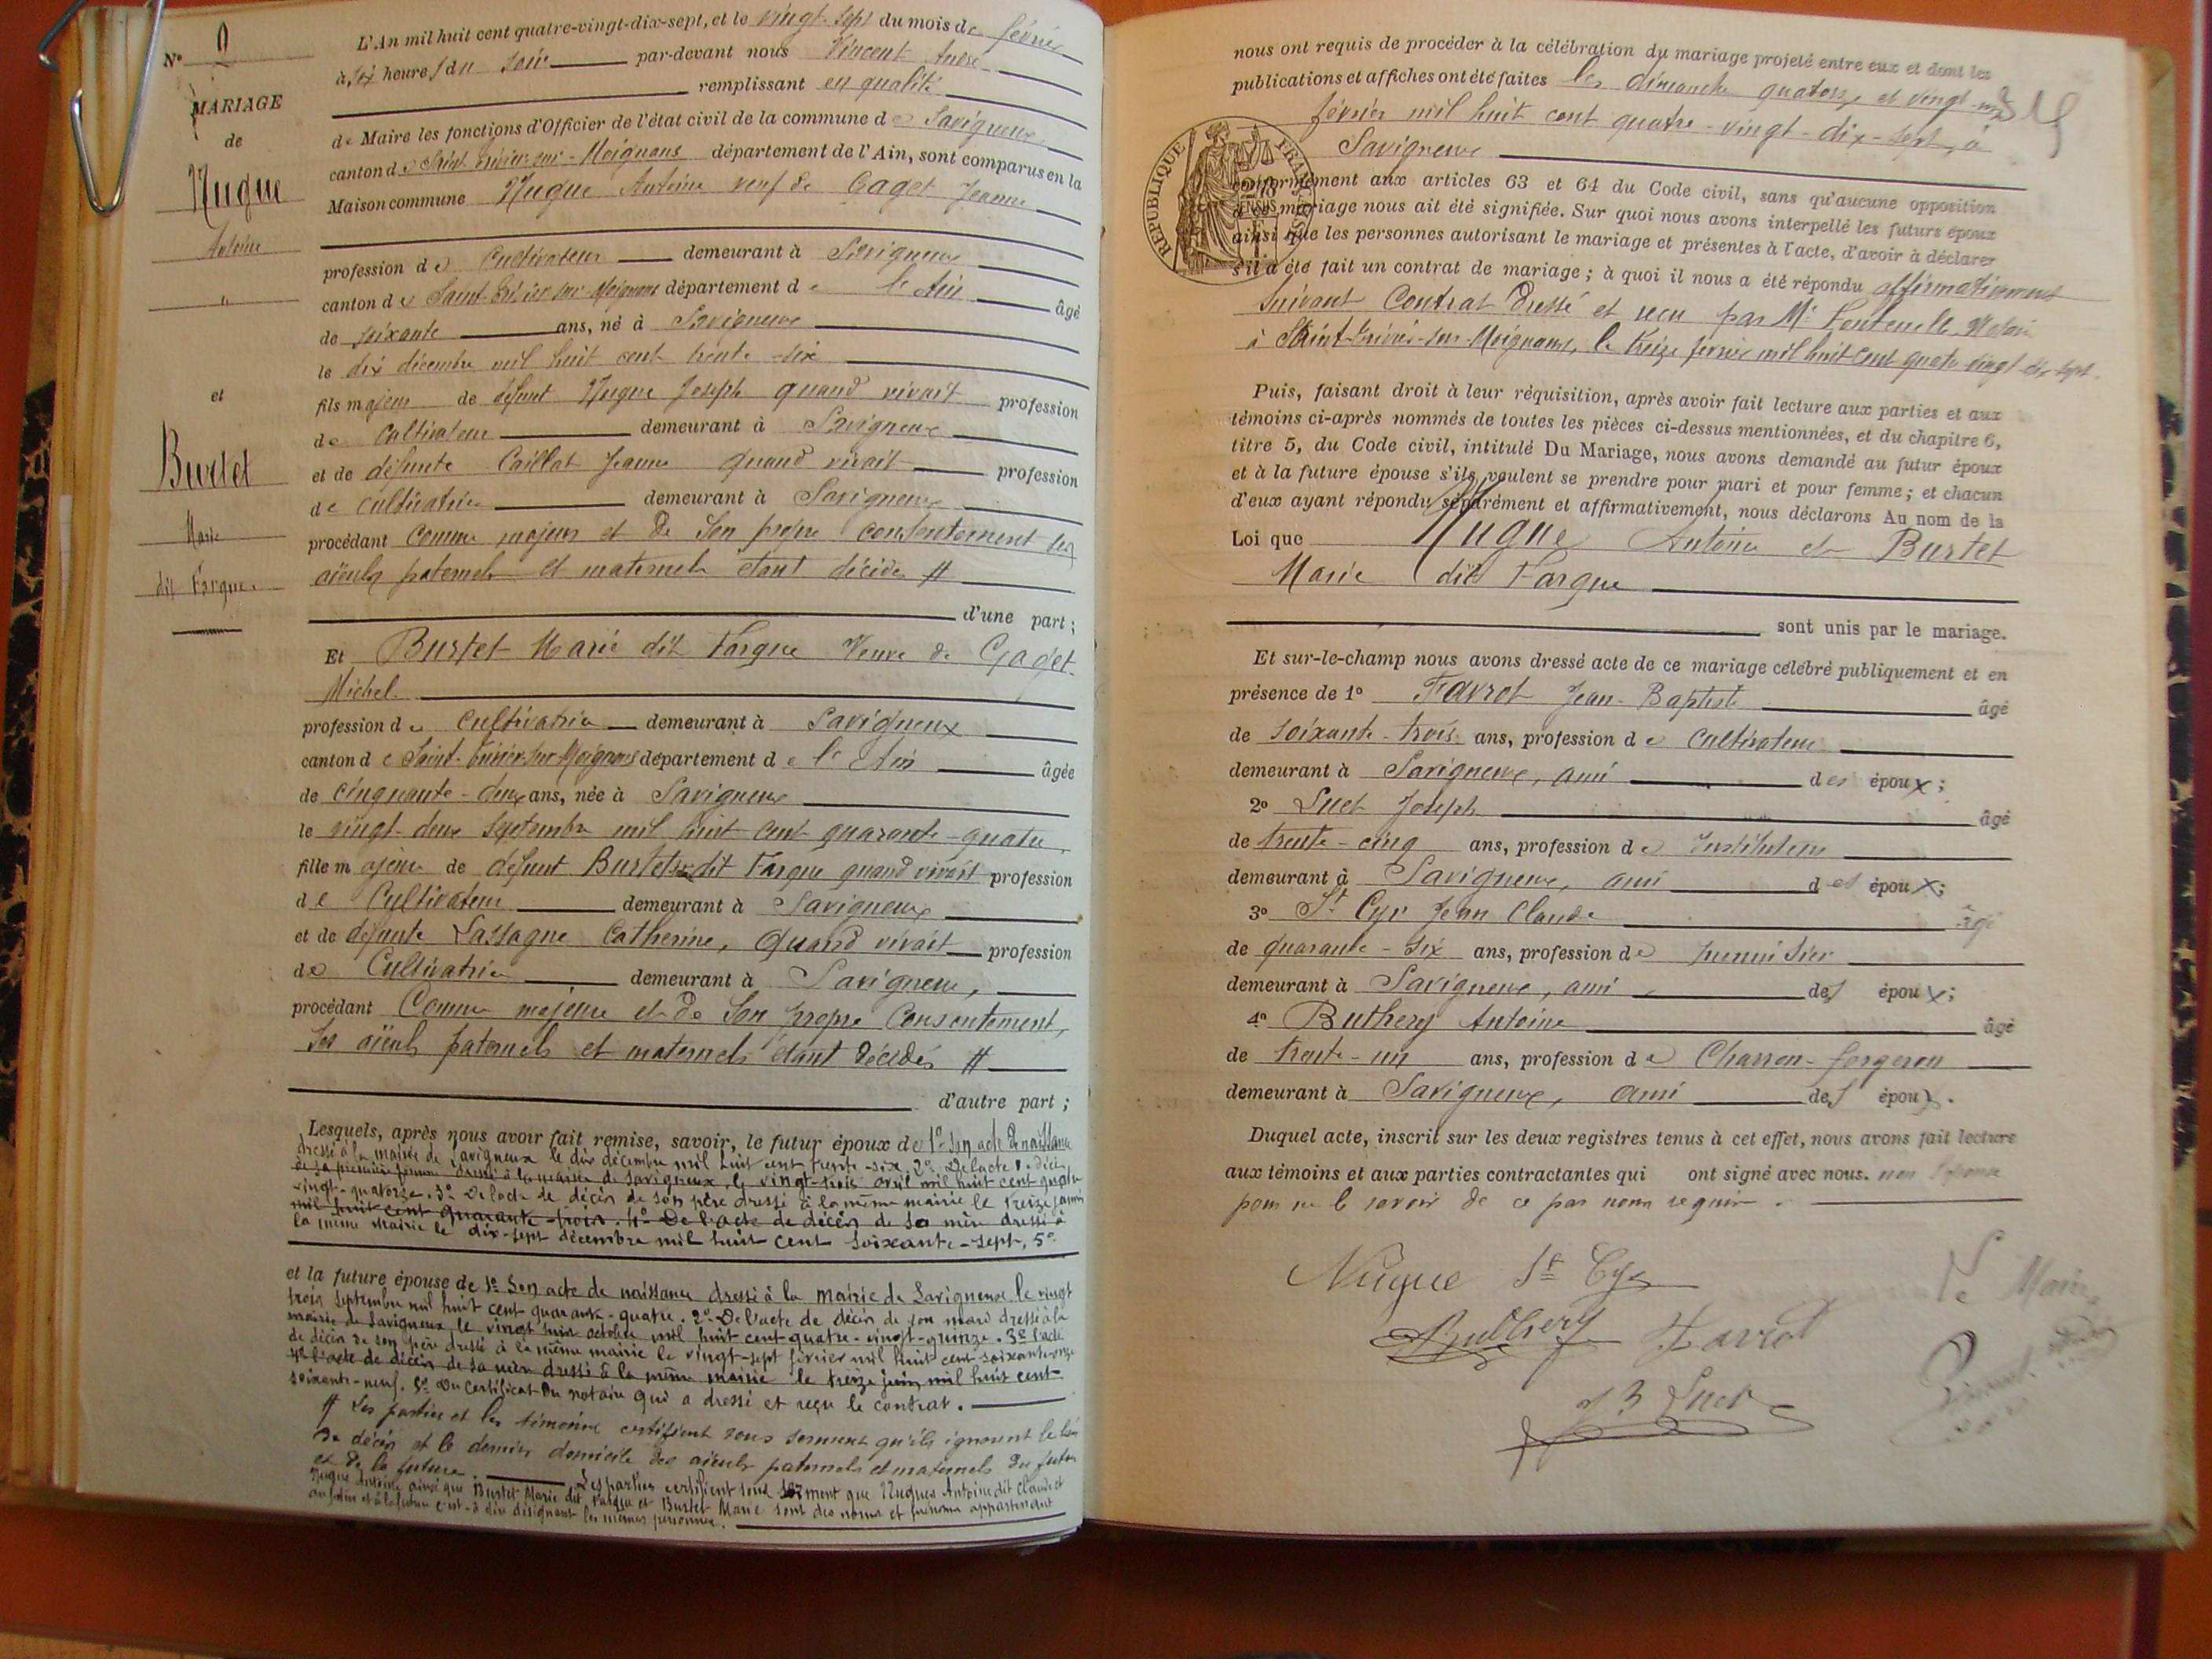 N° 2
MARIAGE
de
Nugue
Antoine
"
et
Burtet
Marie
dit Fargue
L'An mil huit cent quatre-vingt-dix-sept, et le vingt-sept du mois de février
à six heures du soir par-devant nous Vincent André
remplissant en qualité
de Maire les fonctions d'Officier de l'état civil de la commune de Savigneux
canton de Saint-Trivier-sur-Moignans département de l'Ain, sont comparus en la
Maison commune Nugue Antoine veuf de Gaget Jeanne
profession de Cultivateur demeurant à Savigneux
canton de Saint-Trivier-sur-Moignans département de l'Ain âgé
de soixante ans, né à Savigneux
le dix décembre mil huit cent trente-six
fils majeur de défunt Nugue Joseph quand vivait profession
de Cultivateur demeurant à Savigneux
et de défunte Caillat Jeanne quand vivait profession
de cultivatrice demeurant à Savigneux
procédant comme majeur et de son propre consentement ses
aïeuls paternels et maternels étant décédés #
d'une part;
Et Burtet Marie dit Fargue Veuve de Gaget
Michel
profession de Cultivatrice demeurant à Savigneux
canton de Saint-Trivier-sur-Moignans département de l'Ain âgée
de cinquante-deux ans, née à Savigneux
le vingt-deux septembre mil huit cent quarante-quatre
fille majeure de défunt Burtet dit Fargue quand vivait profession
de Cultivateur demeurant à Savigneux
et de défunte Lassagne Catherine, quand vivait profession
de Cultivatrice demeurant à Savigneux,
procédant Comme majeure et de son propre consentement,
ses aïeuls paternels et maternels étant décédés #
d'autre part;
Lesquels, après nous avoir fait remise, savoir, le futur époux de 1° son acte de naissance
dressé à la mairie de Savigneux le dix décembre mil huit cent trente-six. 2° De l'acte de décès
de sa première femme dressé à la mairie de Savigneux, le vingt-trois avril mil huit cent quatre
vingt-quatorze. 3° De l'acte de décès de son père dressé à la même mairie le treize janvier
mil huit cent quarante-trois. 4° De l'acte de décès de sa mère dressé à
la même mairie le dix-sept décembre mil huit cent soixante-sept, 5°
et la future épouse de 1° Son acte de naissance dressé à la mairie de Savigneux le vingt
trois septembre mil huit cent quarante-quatre. 2° De l'acte de décès de son mari dressé à la
mairie de Savigneux le vingt huit octobre mil huit cent quatre-vingt-quinze. 3° l'acte
de décès de son père dressé à la même mairie le vingt-sept février mil huit cent soixante onze
4° l'acte de décès de sa mère dressé à la même mairie le treize juin mil huit cent
soixante-neuf. 5° Du certificat du notaire qui a dressé et reçu le contrat.
# Les parties et les témoins certifient sous serment qu'ils ignorent le lieu
de décès et le dernier domicile des aïeuls paternels et maternels du futur
et de la future. Les parties certifient sous serment que Nugue Antoine dit Claude et
Nugue Antoine ainsi que Burtet Marie dit Fargue et Burtet Marie sont des noms et prénoms appartenant
au futur et à la future c'est-à-dire désignant les mêmes personnes.
nous ont requis de procéder à la célébration du mariage projeté entre eux et dont les
publications et affiches ont été faites les dimanche quatorze et vingt-un
février mil huit cent quatre-vingt-dix-sept, à
Savigneux
RÉPUBLIQUE FRANÇAISE
conformément aux articles 63 et 64 du Code civil, sans qu'aucune opposition
à ce mariage nous ait été signifiée. Sur quoi nous avons interpellé les futurs époux
ainsi que les personnes autorisant le mariage et présentes à l'acte, d'avoir à déclarer
s'il a été fait un contrat de mariage; à quoi il nous a été répondu affirmativement
suivant Contrat dressé et reçu par Me Notaire
à Saint-Trivier-sur-Moignans, le treize février mil huit cent quatre vingt dix sept.
Puis, faisant droit à leur réquisition, après avoir fait lecture aux parties et aux
témoins ci-après nommés de toutes les pièces ci-dessus mentionnées, et du chapitre 6,
titre 5, du Code civil, intitulé Du Mariage, nous avons demandé au futur époux
et à la future épouse s'ils veulent se prendre pour mari et pour femme; et chacun
d'eux ayant répondu séparément et affirmativement, nous déclarons Au nom de la
Loi que Nugue Antoine et Burtet
Marie dit Fargue
sont unis par le mariage.
Et sur-le-champ nous avons dressé acte de ce mariage célébré publiquement et en
présence de 1° Favrot Jean-Baptiste âgé
de soixante-trois ans, profession de Cultivateur
demeurant à Savigneux, ami des époux;
2° Luet Joseph âgé
de trente-cinq ans, profession de Instituteur
demeurant à Savigneux, ami des époux;
3° St Cyr Jean Claude âgé
de quarante-six ans, profession de menuisier
demeurant à Savigneux, ami des époux;
4° Buthery Antoine âgé
de trente-un ans, profession de Charron-forgeron
demeurant à Savigneux, ami des époux.
Duquel acte, inscrit sur les deux registres tenus à cet effet, nous avons fait lecture
aux témoins et aux parties contractantes qui ont signé avec nous. non l'épouse
pour ne le savoir de ce par nous requise.
Nugue St Cyr
Le Maire
Buthery Favrot
Vincent
J B Luet